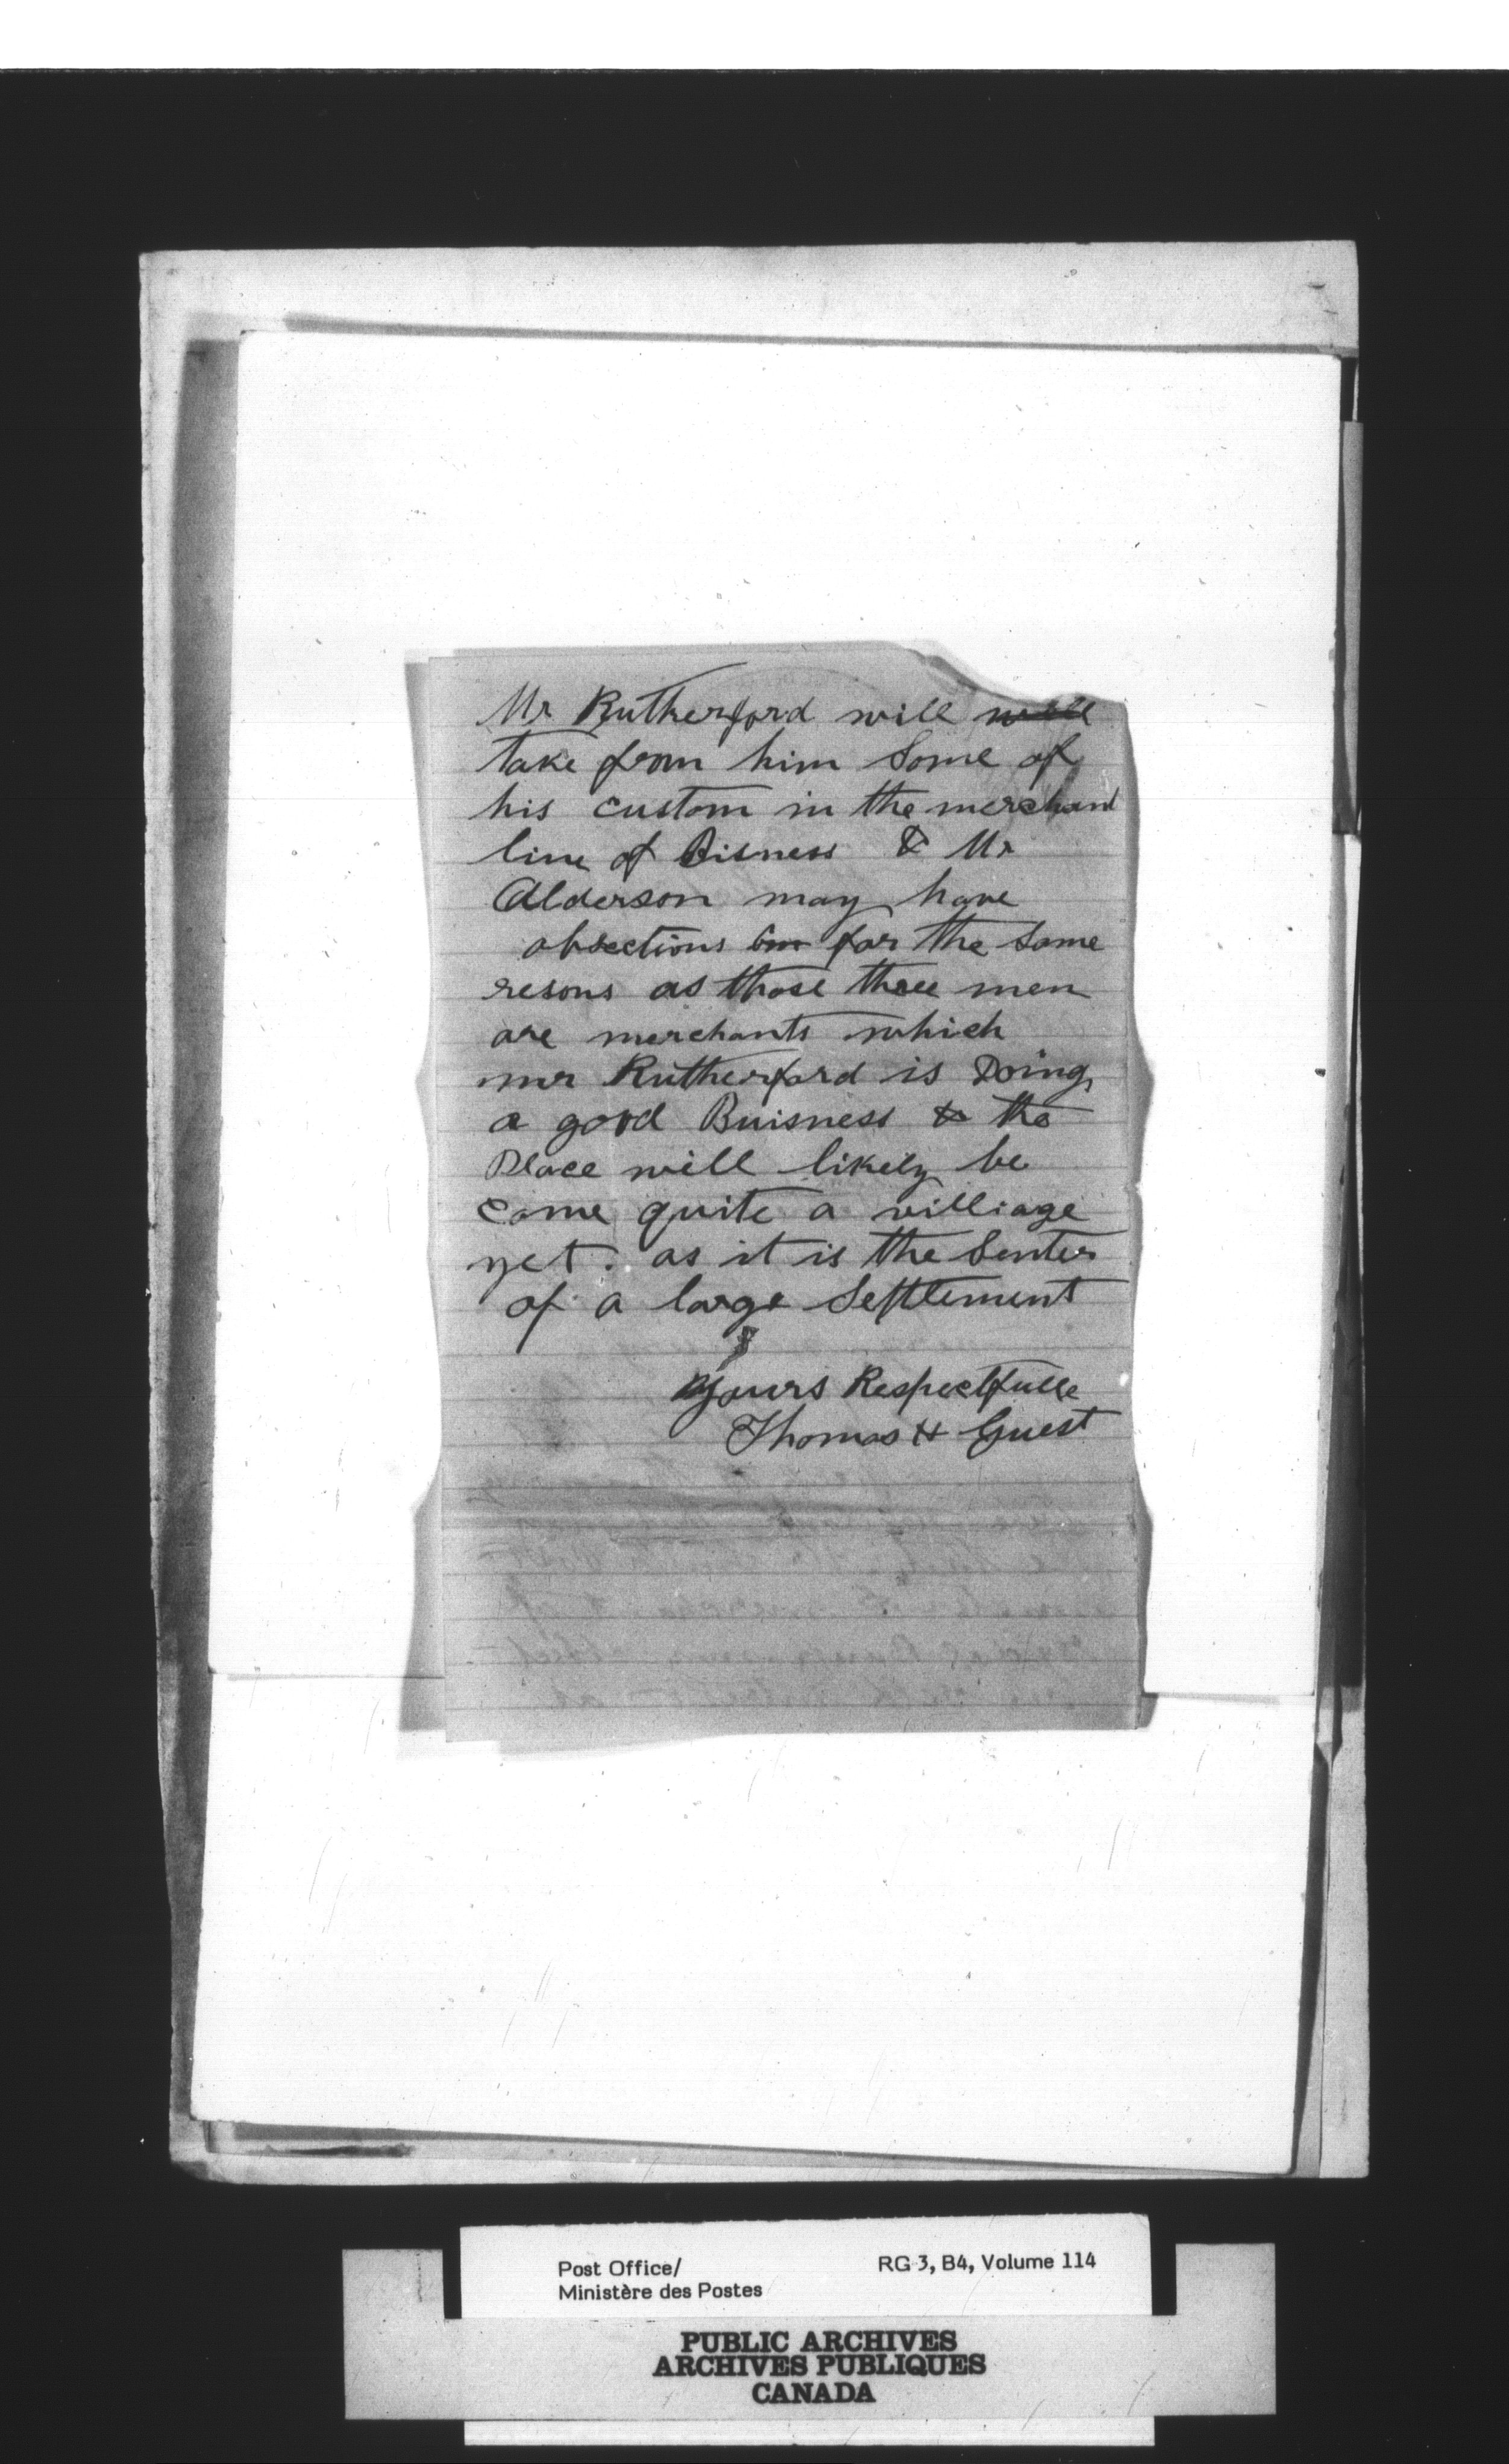 Mr Rutherford will will
take from him some of
his custom in the merchant
line of Bisness & Mr
Alderson may have
obsections for the same
resons as those three men
are merchants which
mr Rutherford is Doing
a good Buisness & the
Place will likely be
come quite a villiage
yet. as it is the Senter
of a large Settlement
Yours Respectfulle
Thomas H Guest
Post Office/ RG 3, B4, Volume 114
Ministère des Postes
PUBLIC ARCHIVES
ARCHIVES PUBLIQUES
CANADA